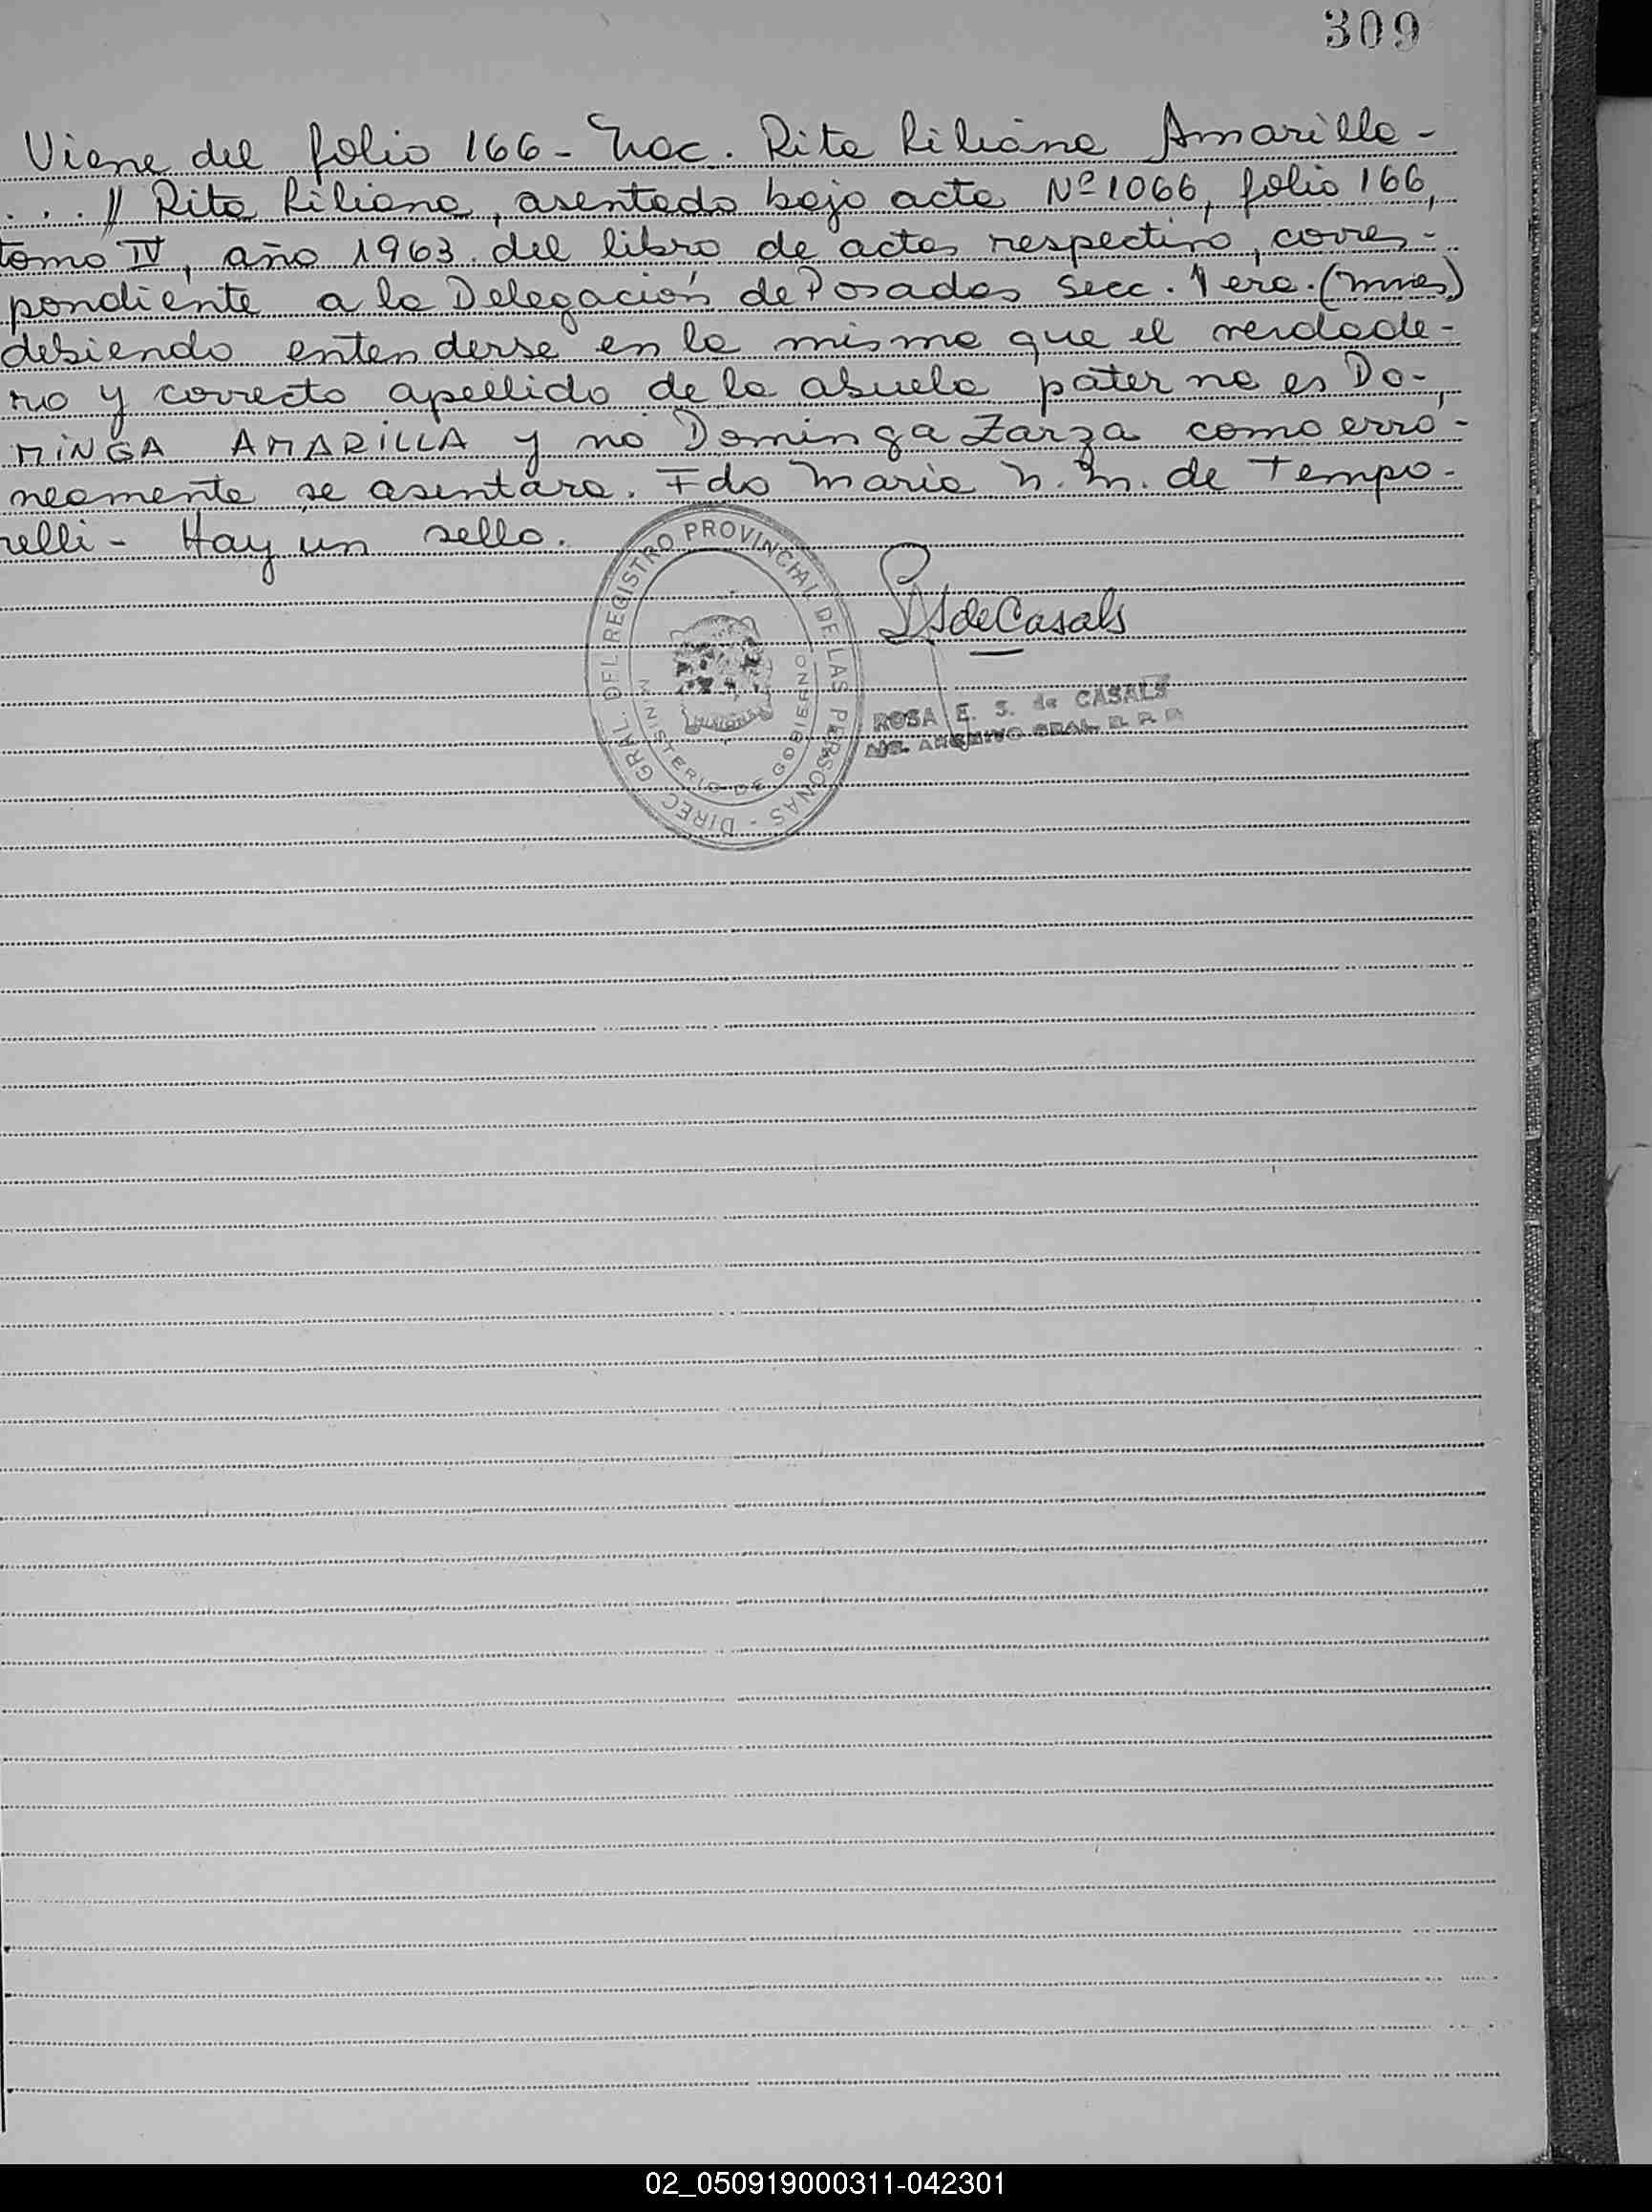 309
Viene del folio 166 - Nac. Rita Liliana Amarilla -
. . . // Rita Liliana, asentada bajo acta Nº 1066, folio 166,
tomo IV, año 1963 del libro de actas respectivo, corres-
pondiente a la Delegación de Posadas Secc. 1era. (Mnes)
debiendo entenderse en la misma que el verdade-
ro y correcto apellido de la abuela paterna es Do-
MINGA AMARILLA y no Dominga Zarza como erró-
neamente se asentara. Fdo Maria N. M. de Tempo-
relli - Hay un sello.
DIREC. GRAL. DEL REGISTRO PROVINCIAL DE LAS PERSONAS -
MINISTERIO DE GOBIERNO
de Casals
ROSA E. S. de CASALS
ARCHIVO GRAL. R. P. P.
02_050919000311-042301